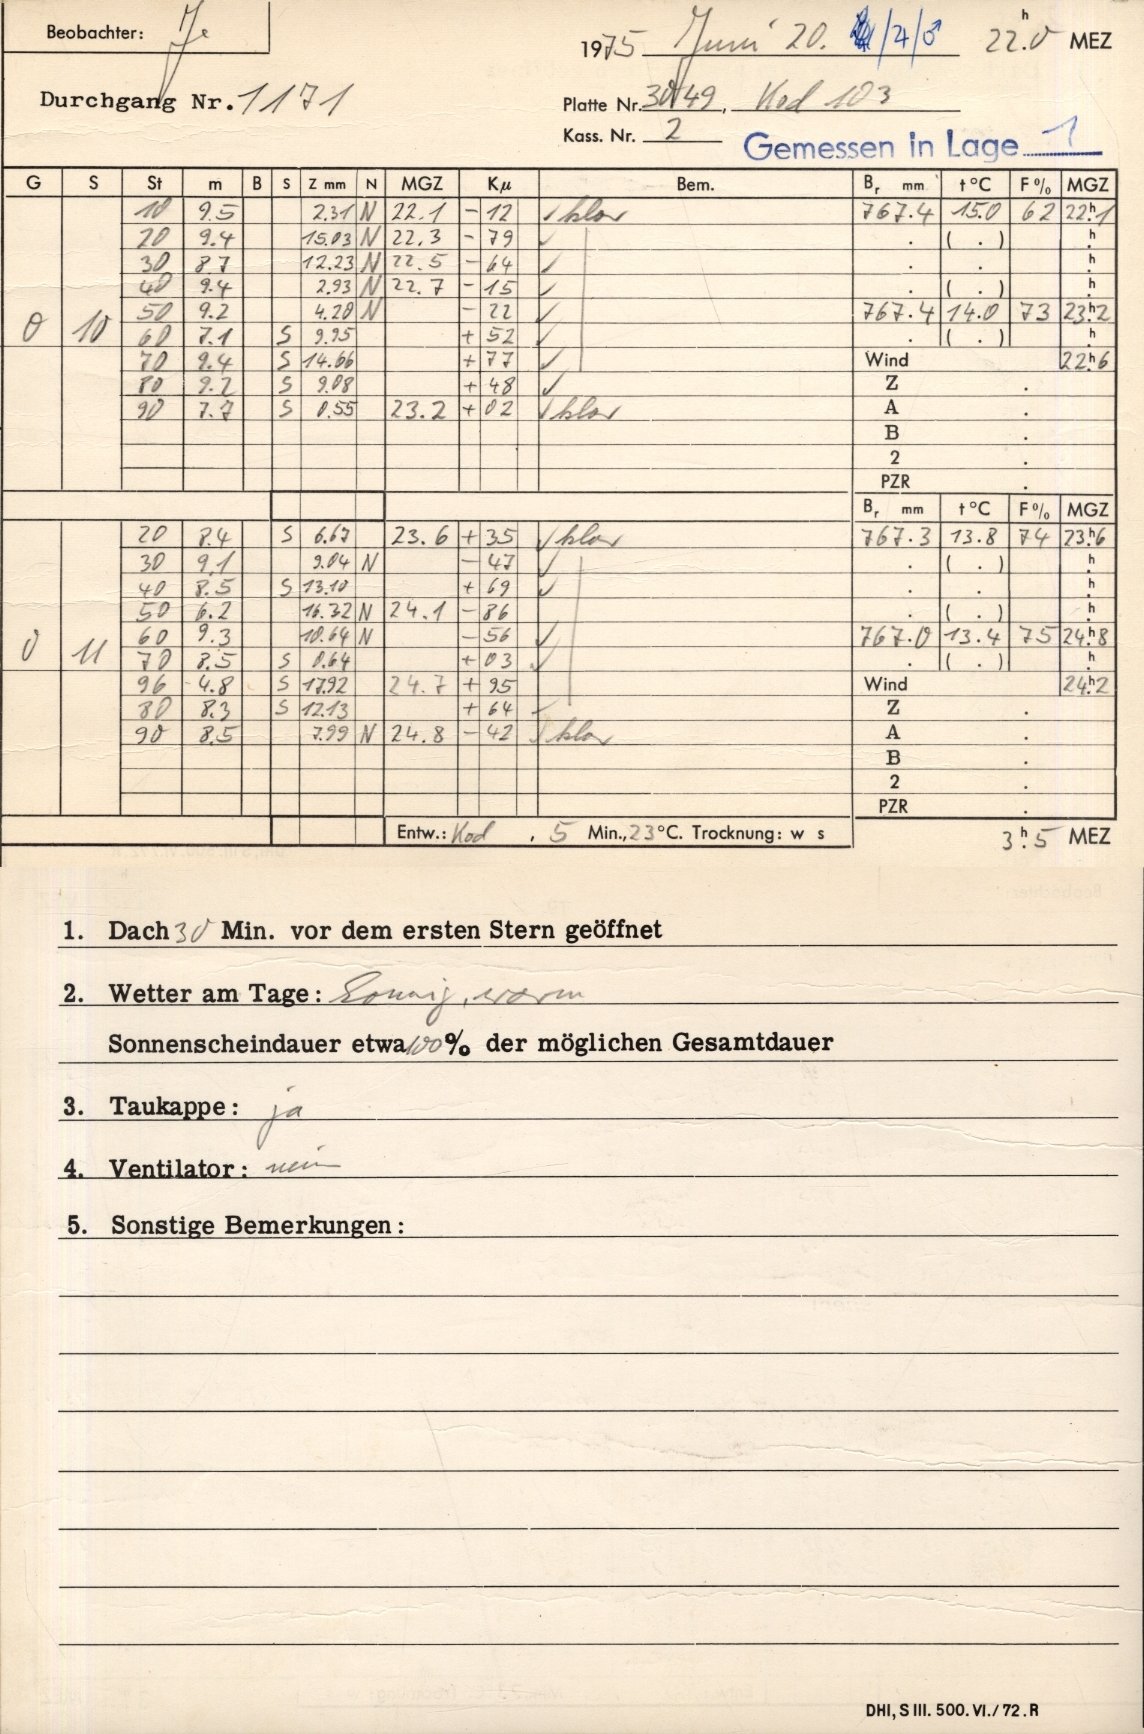 Beobachter: Je
1975 Juni 20. /4/♂ 22h.0 MEZ
Durchgang Nr. 1171
Platte Nr. 3049, Kod 103
Kass. Nr. 2
Gemessen in Lage 1
G S St m B S Z mm N MGZ Kμ Bem. Br mm t°C F% MGZ
10 9.5 2.31 N 22.1 - 12 ✓ klar 767.4 15.0 62 22h.1
20 9.4 15.03 N 22.3 - 79 ✓ . ( . ) h.
30 8.7 12.23 N 22.5 - 64 ✓ . . h.
40 9.4 2.93 N 22.7 - 15 ✓ . ( . ) h.
50 9.2 4.20 N - 22 ✓ 767.4 14.0 73 23h.2
0 10 60 7.1 S 9.95 + 52 ✓ . ( . ) h.
70 9.4 S 14.66 + 77 ✓ Wind 22h.6
80 9.2 S 9.08 + 48 ✓ Z .
90 7.7 S 0.55 23.2 + 02 ✓ klar A .
B .
2 .
PZR .
Br mm t°C F% MGZ
20 8.4 S 6.67 23.6 + 35 ✓ klar 767.3 13.8 74 23h.6
30 9.1 9.04 N - 47 ✓ . ( . ) h.
40 8.5 S 13.10 + 69 ✓ . . h.
50 6.2 16.32 N 24.1 - 86 . ( . ) h.
0 11 60 9.3 10.64 N - 56 ✓ 767.0 13.4 75 24h.8
70 8.5 S 0.64 + 03 ✓ . ( . ) h.
96 4.8 S 17.92 24.7 + 95 Wind 24h.2
80 8.3 S 12.13 + 64 Z .
90 8.5 7.99 N 24.8 - 42 ✓ klar A .
B .
2 .
PZR .
Entw.: Kod , 5 Min., 23°C. Trocknung: w s 3h.5 MEZ
1. Dach 30 Min. vor dem ersten Stern geöffnet
2. Wetter am Tage: Sonnig, warm
Sonnenscheindauer etwa 100% der möglichen Gesamtdauer
3. Taukappe: ja
4. Ventilator: nein
5. Sonstige Bemerkungen:
DHI, S III. 500. VI./72.R